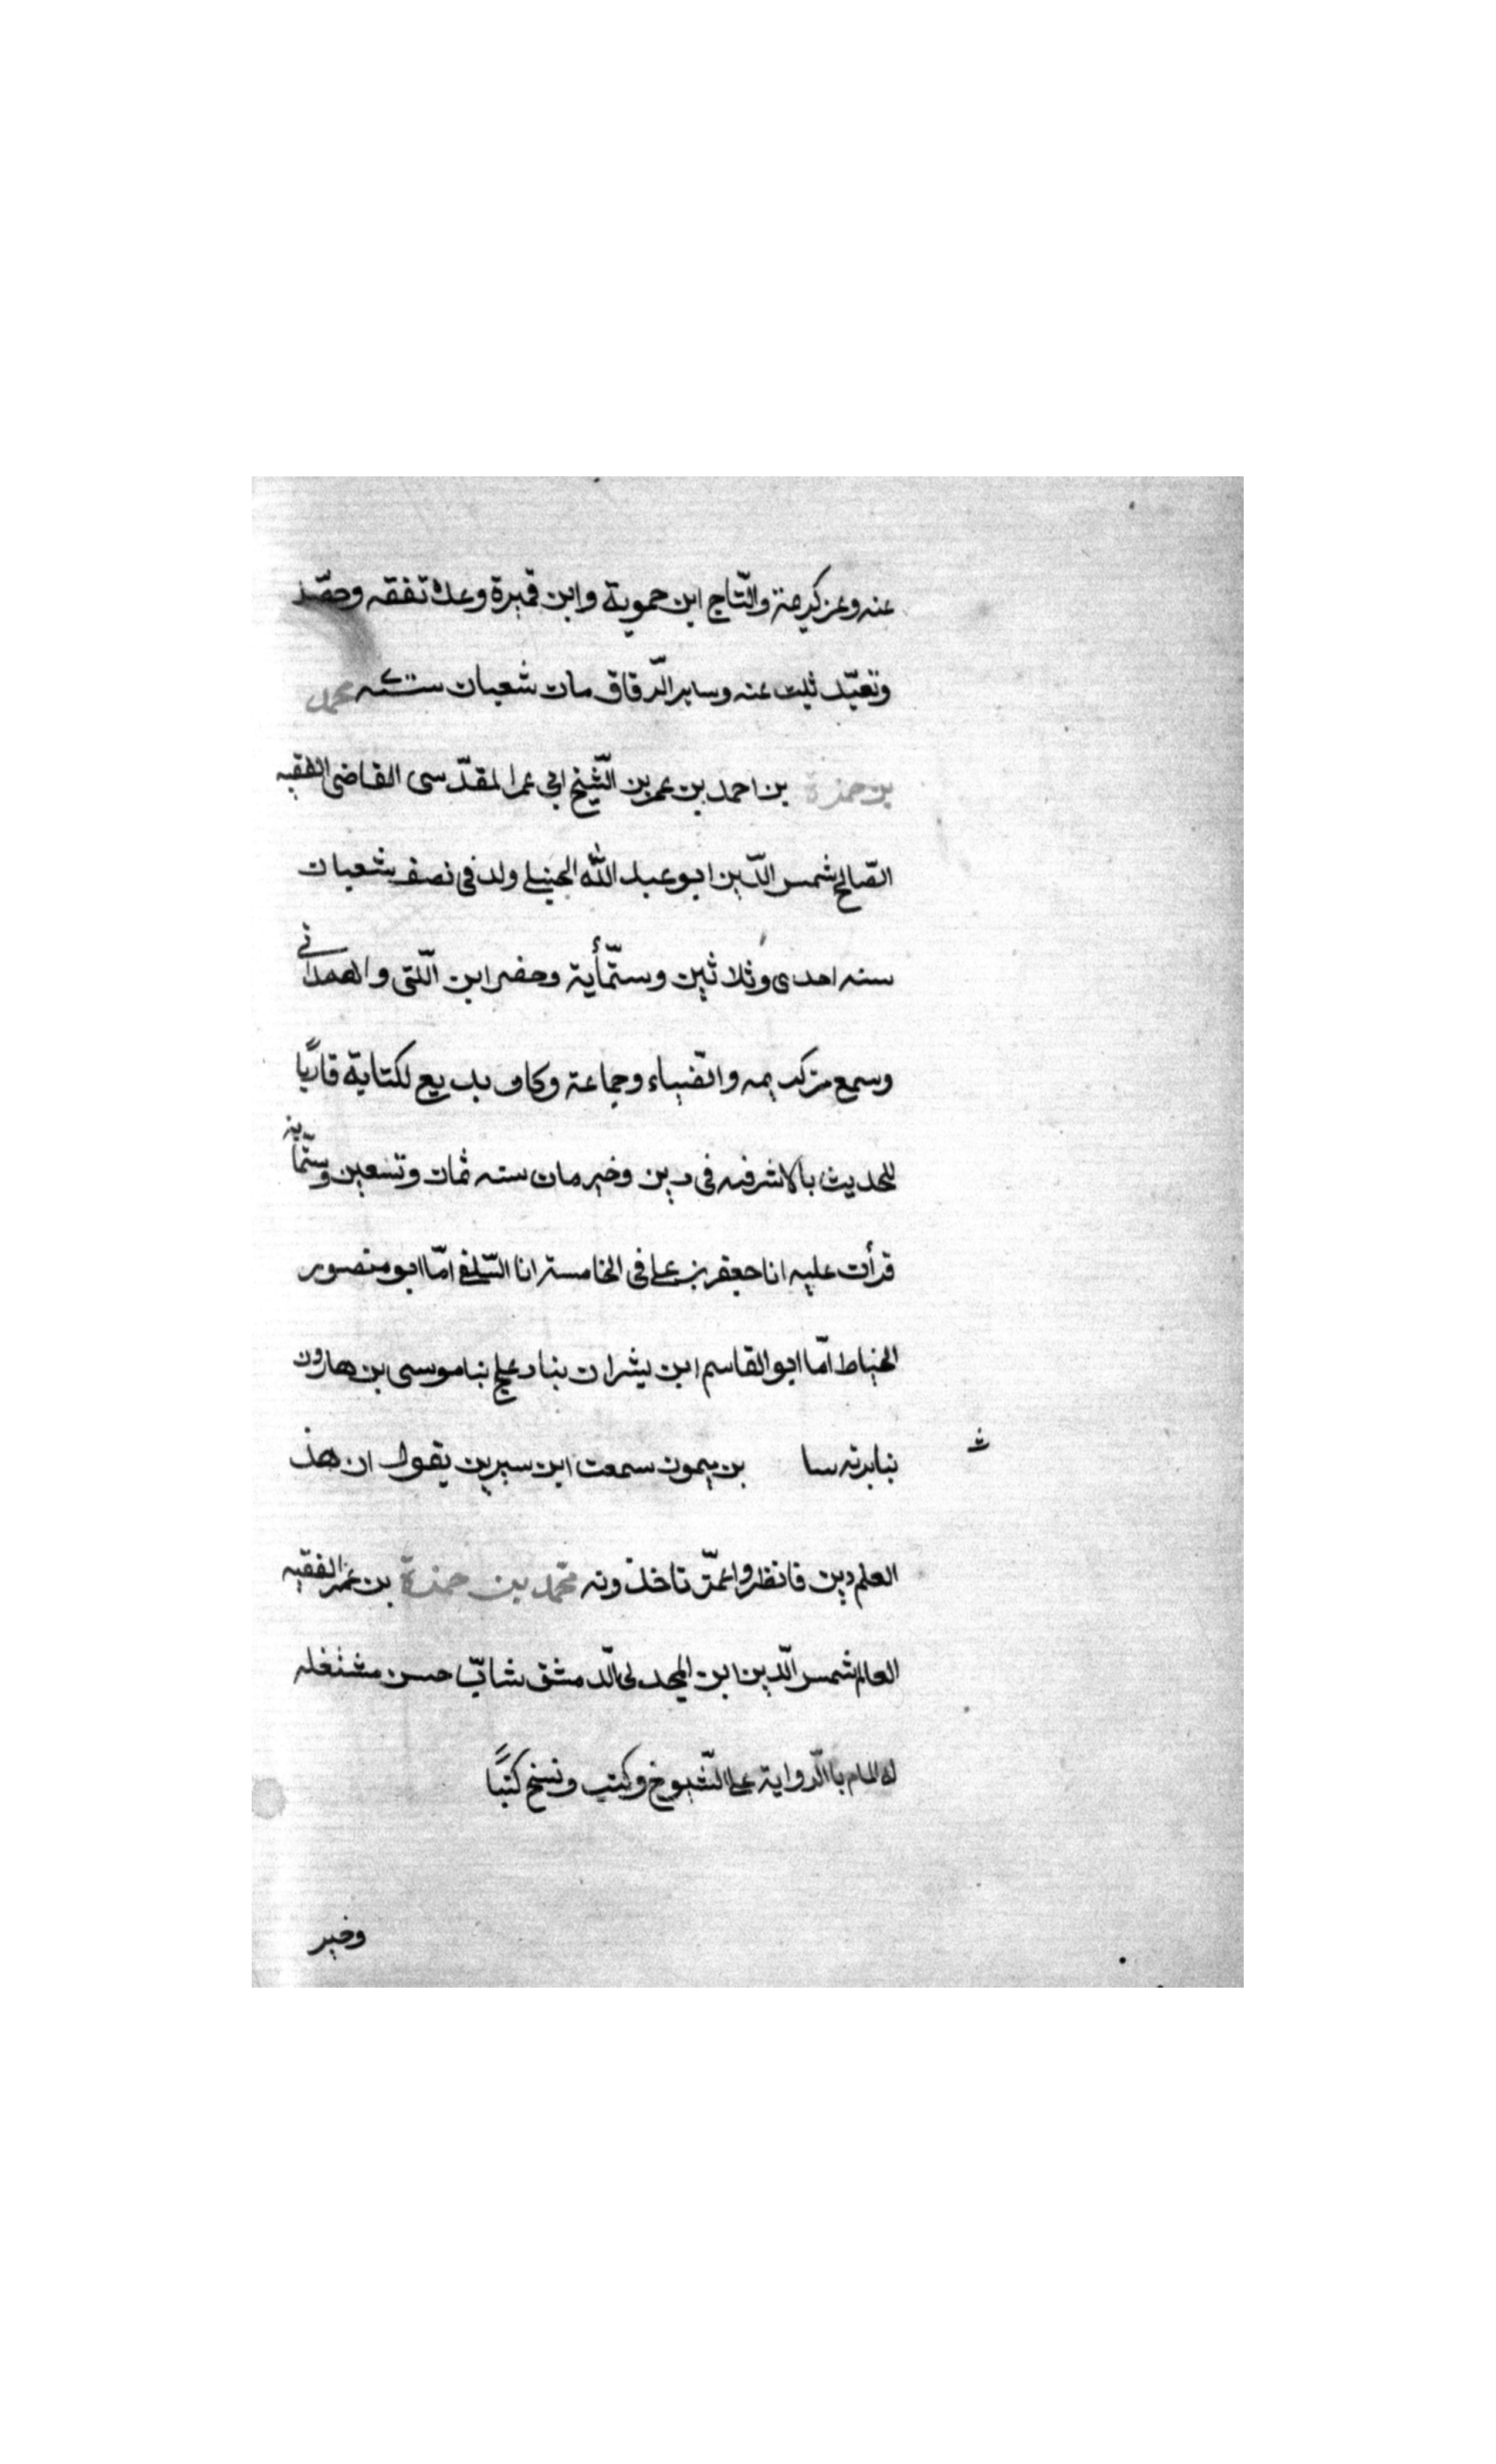 عنه وعن كريمة والتّاج ابن حموية وابن قميرة وعدة تفقه وحصّد
وتعبّد ثبت عنه وساير الدّقاق مات شعبان
محمد
بن حمزة بن احمد بن عمر بن الشّيخ ابى عمر المقدّسى القاضى الفقيه
الصّالح شمس الدّين ابو عبد الله الحنبلى ولد فى نصف شعبان
سنه احدى وثلاثين وستّمأية وحضر ابن اللّتى والهمدانى
وسمع من كريمه والضّياء وجماعة وكان بديع لكتابة قاريًا
للحديث بالاشرفيه فى دين وخير مات سنه ثمان وتسعين وستّماية
قرأت عليه انا جعفر بن على فى الخامسة انا السّلفى امّا ابو منصور
الخياط امّا ابو القاسم ابن بشران بنا دعلج نبا موسى بن هارون
بن ميمون سمعت ابن سيرين يقول ان هذ
العلم دين فانظروا عمّن تاخذونه محمّد بن حمزة بن عمر الفقيه
العالم شمس الدّين ابن المجد لى الدّمشقى شابّ حسن مشتغله
له المام باالرّواية على الشّيوخ وكتب ونسخ كتبًا
وخير